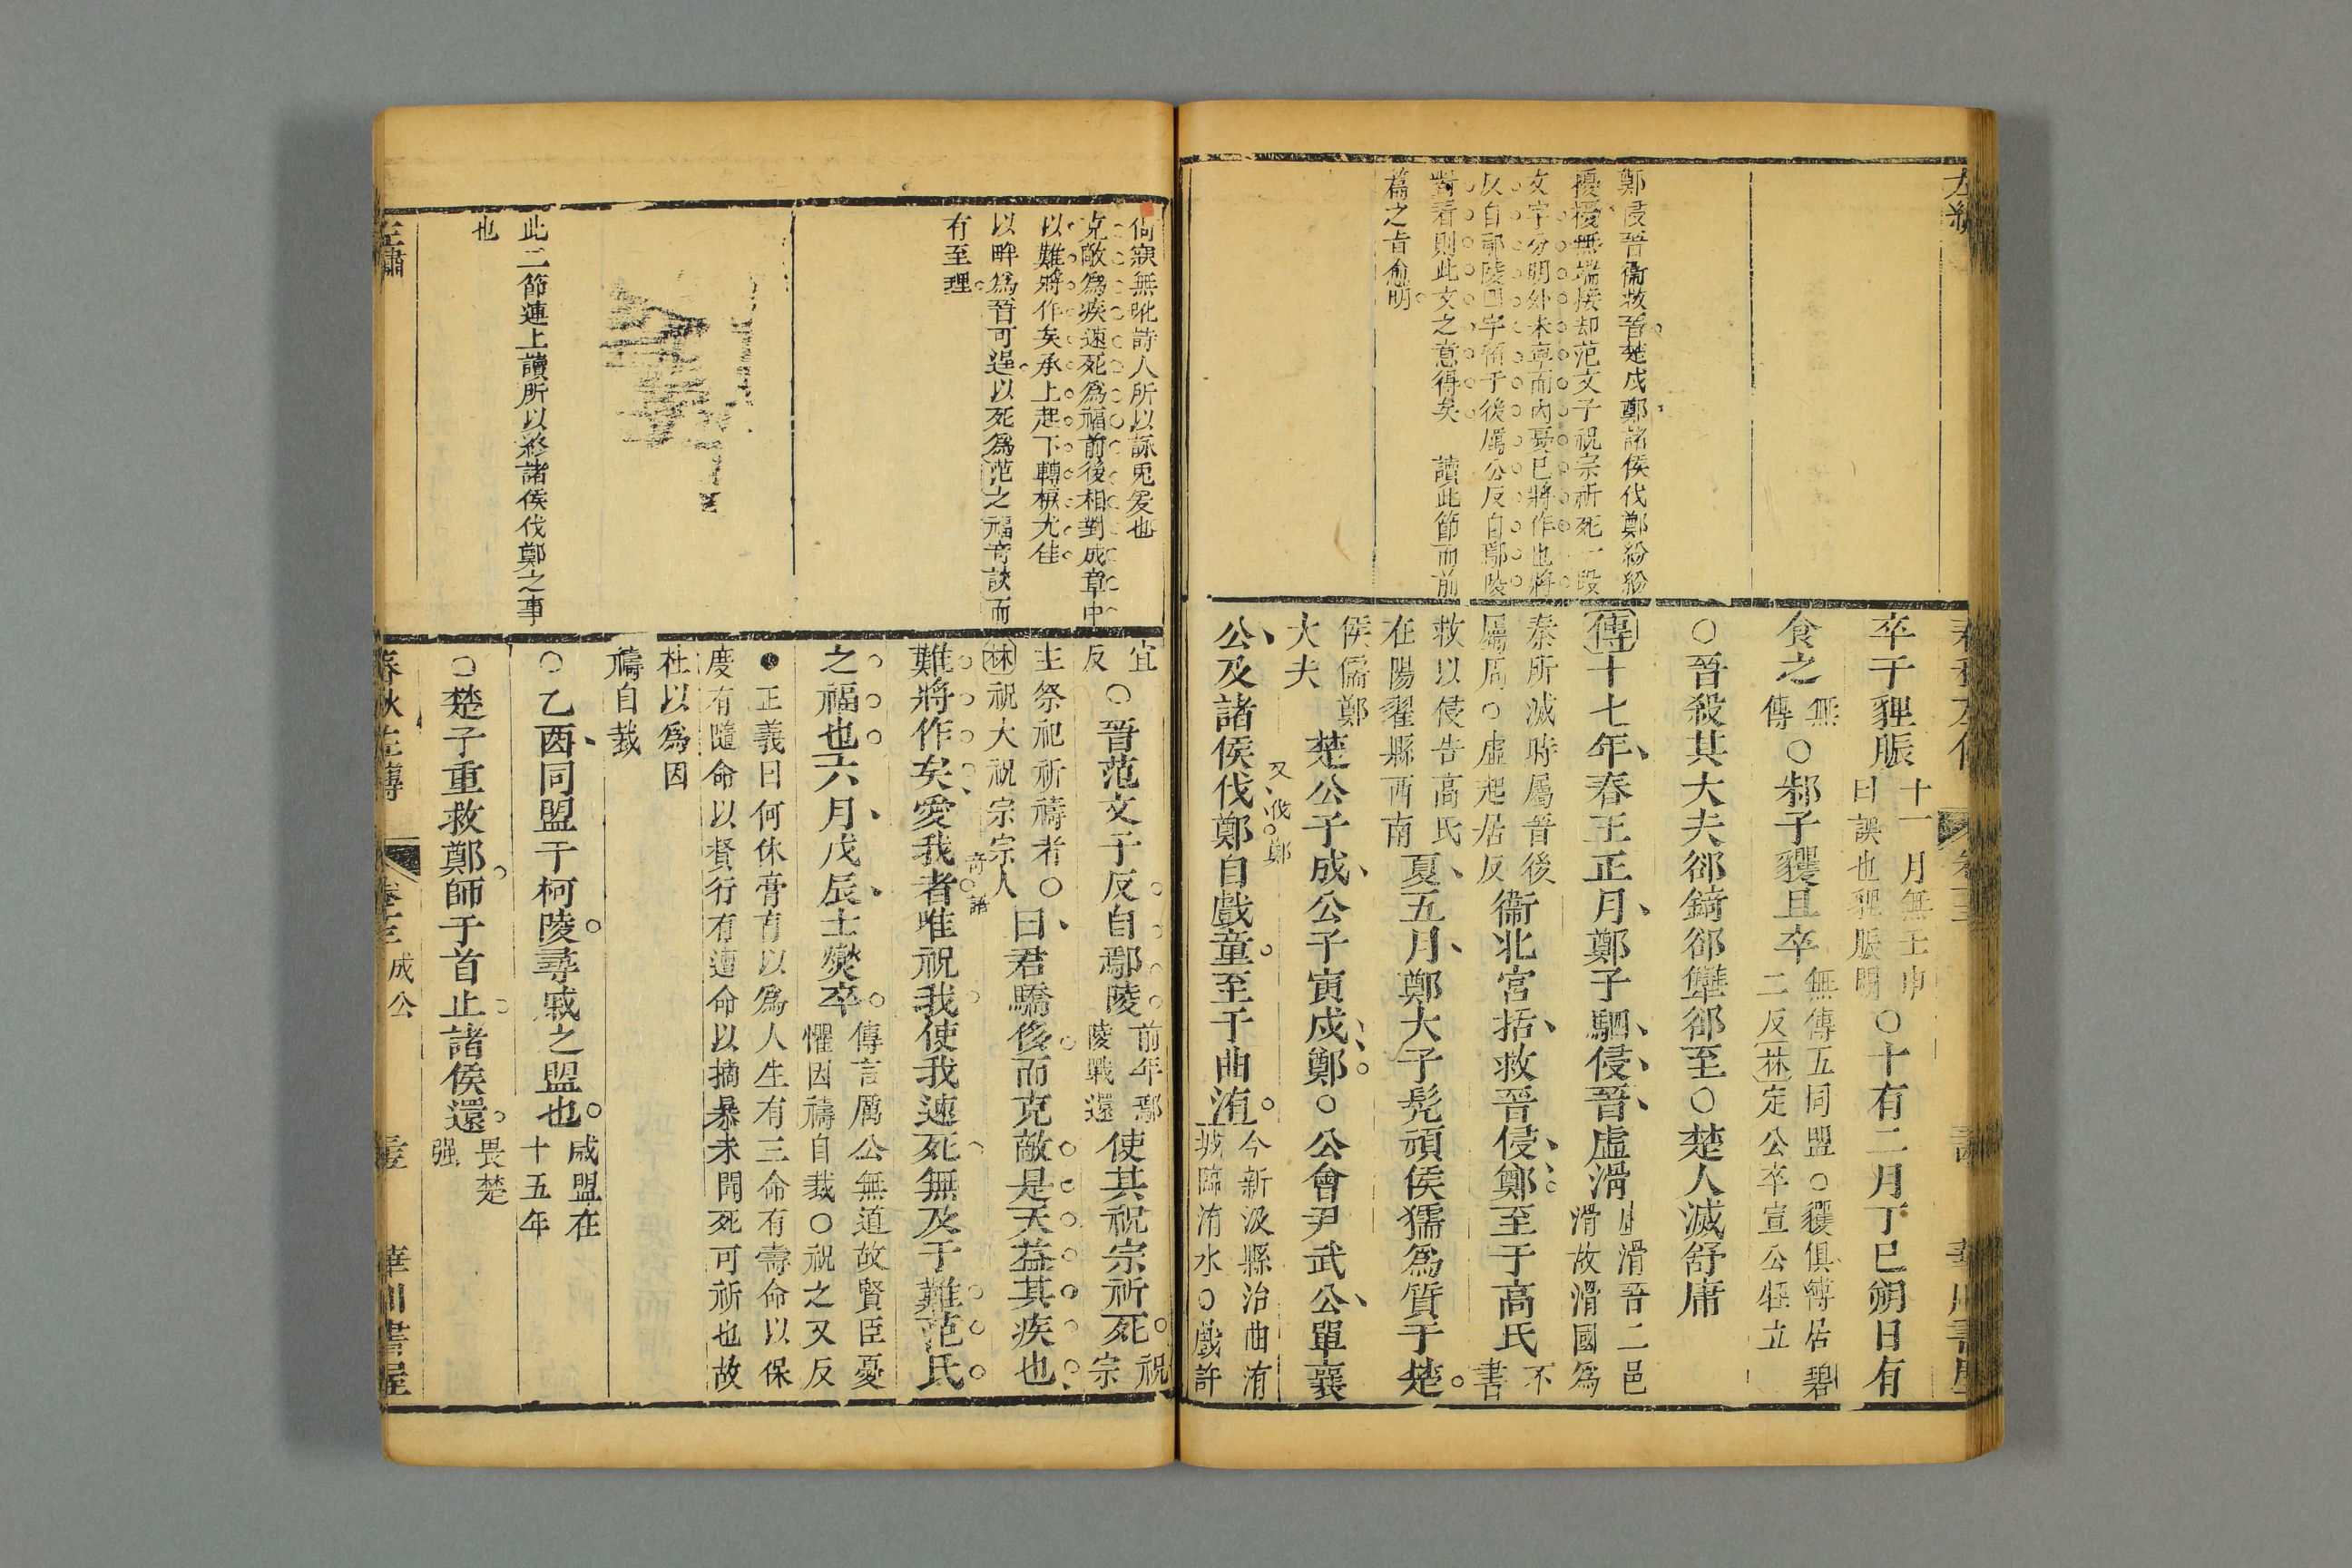 鄭侵晉衞救晉楚戍鄭諸侯伐鄭紛紛
擾擾無端接却范文子祝宗祈死一段
文字分明外未寧而內憂已將作也將
以自鄢陵四字領于後厲公反自鄢陵
對看則此文之意得矣　讀此節而前
篇之旨愈明
卒于貍脤十一月無壬申
日誤也貍脤明〇十有二月丁巳朔日有
食之無
傳〇邾子貜且卒無傳五同盟〇貜俱縛居碧
二反林定公卒宣公牼立
〇晉殺其大夫郤錡郤犫郤至〇楚人滅舒庸
傳十七年春王正月鄭子駟侵晉虛滑虛滑晉二邑
滑故滑國爲
秦所滅時屬晉後
屬周〇虛起居反衞北宮括救晉侵鄭至于高氏不
書
救以侵告高氏
在陽翟縣西南夏五月鄭大子髡頑侯獳爲質于楚
侯獳鄭
大夫楚公子成公子寅戍鄭〇公會尹武公單襄
又伐鄭
公及諸侯伐鄭自戲童至于曲洧今新汲縣治曲洧
城臨洧水〇戲許
尙寐無吪詩人所以詠兎爰也
克敵爲疾速死爲福前後相對成章中
以難將作矣承上起下轉捩尤佳
以畔爲晉可逞以死爲范之福奇談而
有至理
此二節連上讀所以終諸侯伐鄭之事
也
宜
反〇晉范文子反自鄢陵前年鄢
陵戰還使其祝宗祈死祝
宗
主祭祀祈禱者〇
林祝大祝宗宗人曰君驕侈而克敵是天益其疾也
奇語
難將作矣愛我者唯祝我使我速死無及于難范氏
之福也六月戊辰士燮卒傳言厲公無道故賢臣憂
懼因禱自裁〇祝之又反
●正義曰何休膏肓以爲人生有三命有壽命以保
度有隨命以督行有遭命以摘暴未聞死可祈也故
杜以爲因
禱自裁
〇乙酉同盟于柯陵尋戚之盟也戚盟在
十五年
〇楚子重救鄭師于首止諸侯還畏楚
强
左繡
春秋左傳
卷十三
成公
華川書屋